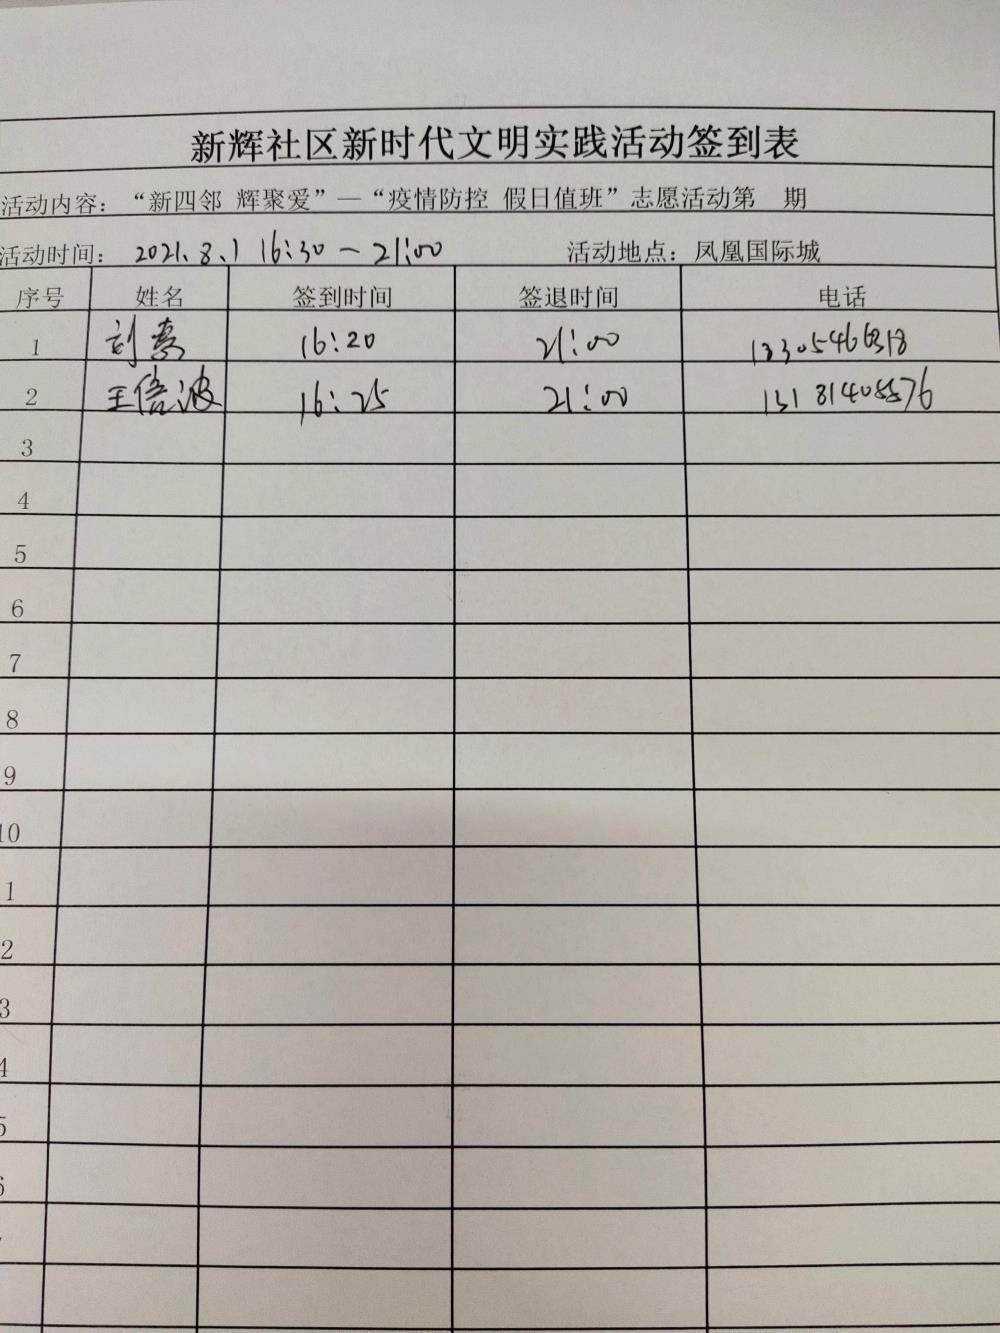 新辉社区新时代文明实践活动签到表
活动内容：“新四邻 辉聚爱”—“疫情防控 假日值班”志愿活动第 期
活动时间： 2021.8.1 16:30—21:00 活动地点：凤凰国际城
序号 姓名 签到时间 签退时间 电话
1 刘 16:20 21:00
2 王倍波 16:25 21:00
3
4
5
6
7
8
9
10
1
2
3
4
5
6